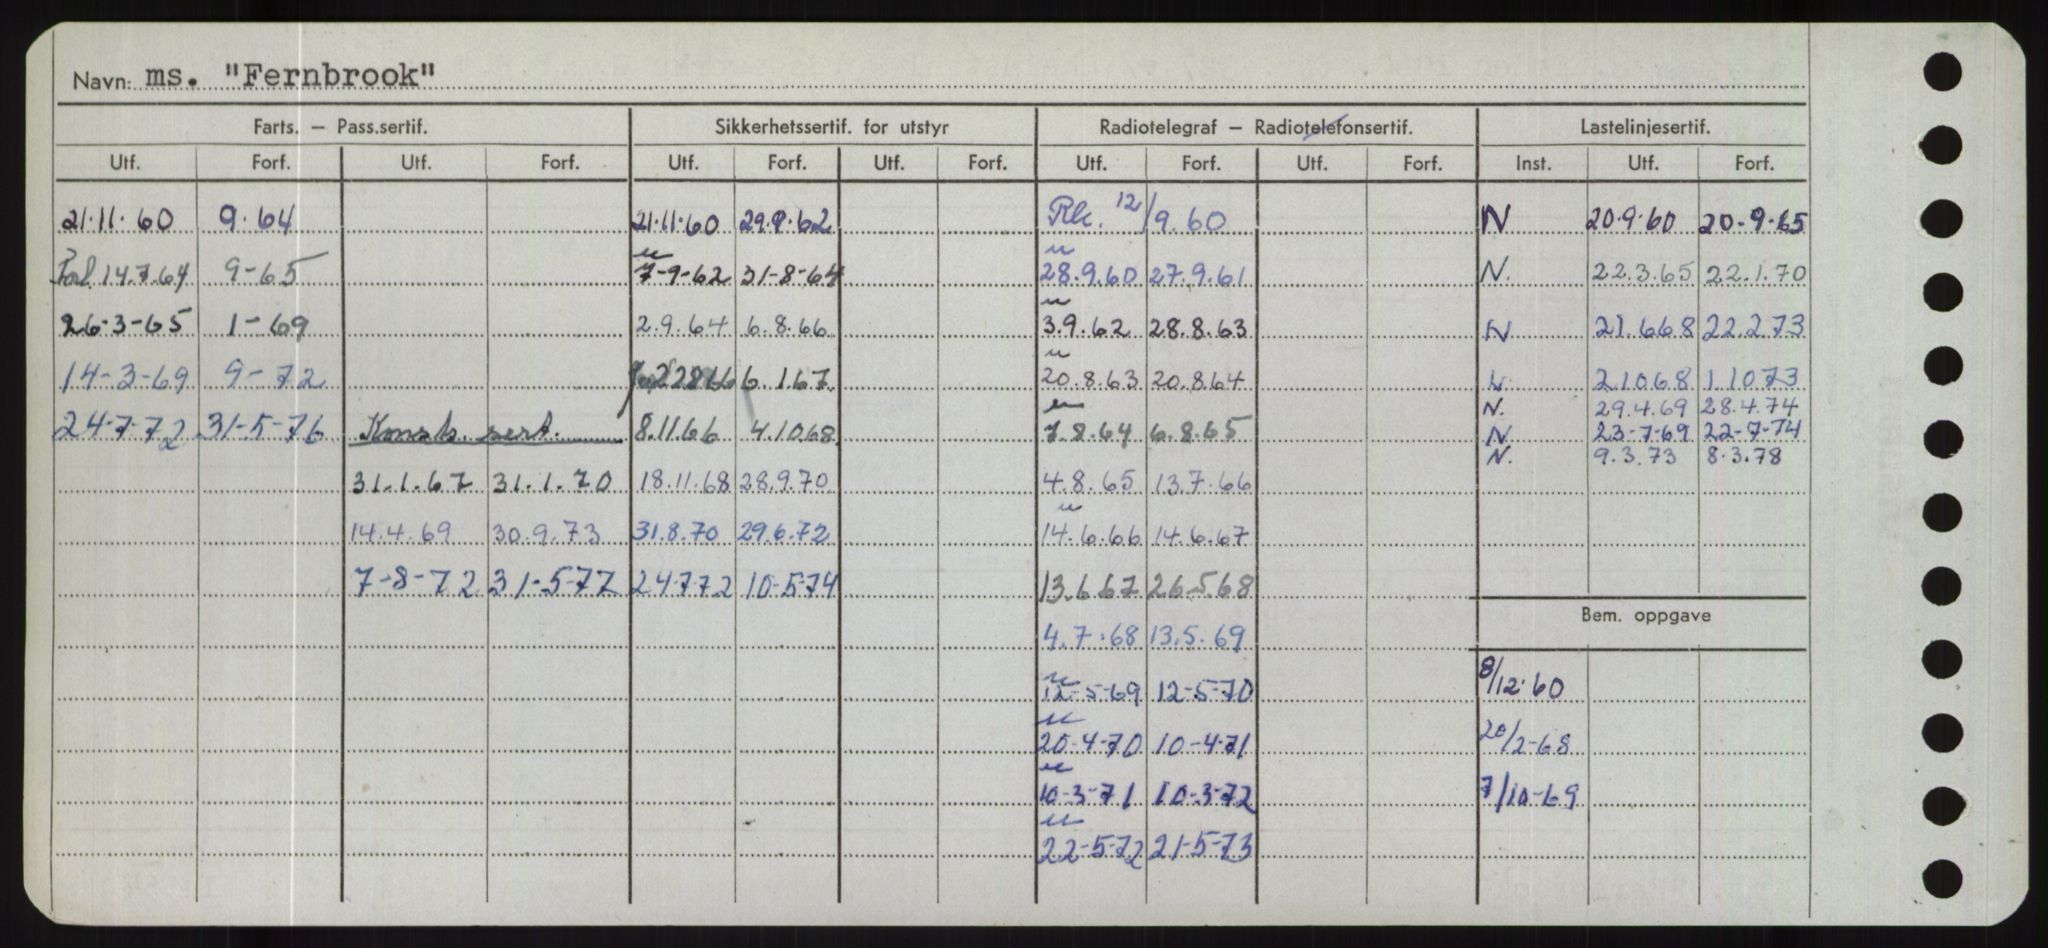 Navn: ms. "Fernbrook"
Farts. – Pass.sertif. Sikkerhetssertif. for utstyr Radiotelegraf – Radiotelefonsertif. Lastelinjesertif.
Utf. Forf. Utf. Forf. Utf. Forf. Utf. Forf. Utf. Forf. Utf. Forf. Inst. Utf. Forf.
21.11.60 9.64 21.11.60 29.9.62 Rk. 12/9.60 N 20.9.60 20-9-65
u u
14.7.64 9-65 7-9-62 31-8-64 28.9.60 27.9.61 N. 22.3.65 22.1.70
u
26-3-65 1-69 2.9.64 6.8.66 3.9.62 28.8.63 N 21.668 22.2.73
u
14-3-69 9-72 6.1.67 20.8.63 20.8.64 L. 21068 11073
u N. 29.4.69 28.4.74
24-7-72 31-5-76 Konstr. sert. 8.11.66 4.1068 7.8.64 6.8.65 N 23-7-69 22-7-74
N. 9.3.73 8.3.78
31.1.67 31.1.70 18.11.68 28.9.70 4.8.65 13.7.66
u
14.4.69 30.9.73 31.8.70 29.6.72 14.6.66 14.6.67
7-8-72 31-5-77 24772 10-5-74 13.667 26.5.68
Bem. oppgave
4.7.68 13.5.69
u
12-5-69 12-5-70 8/12.60
u
20-4-70 10-4-71 20/2-68
u
10-3-71 10-3-72 7/10-69
u
22-5-72 21-5-73